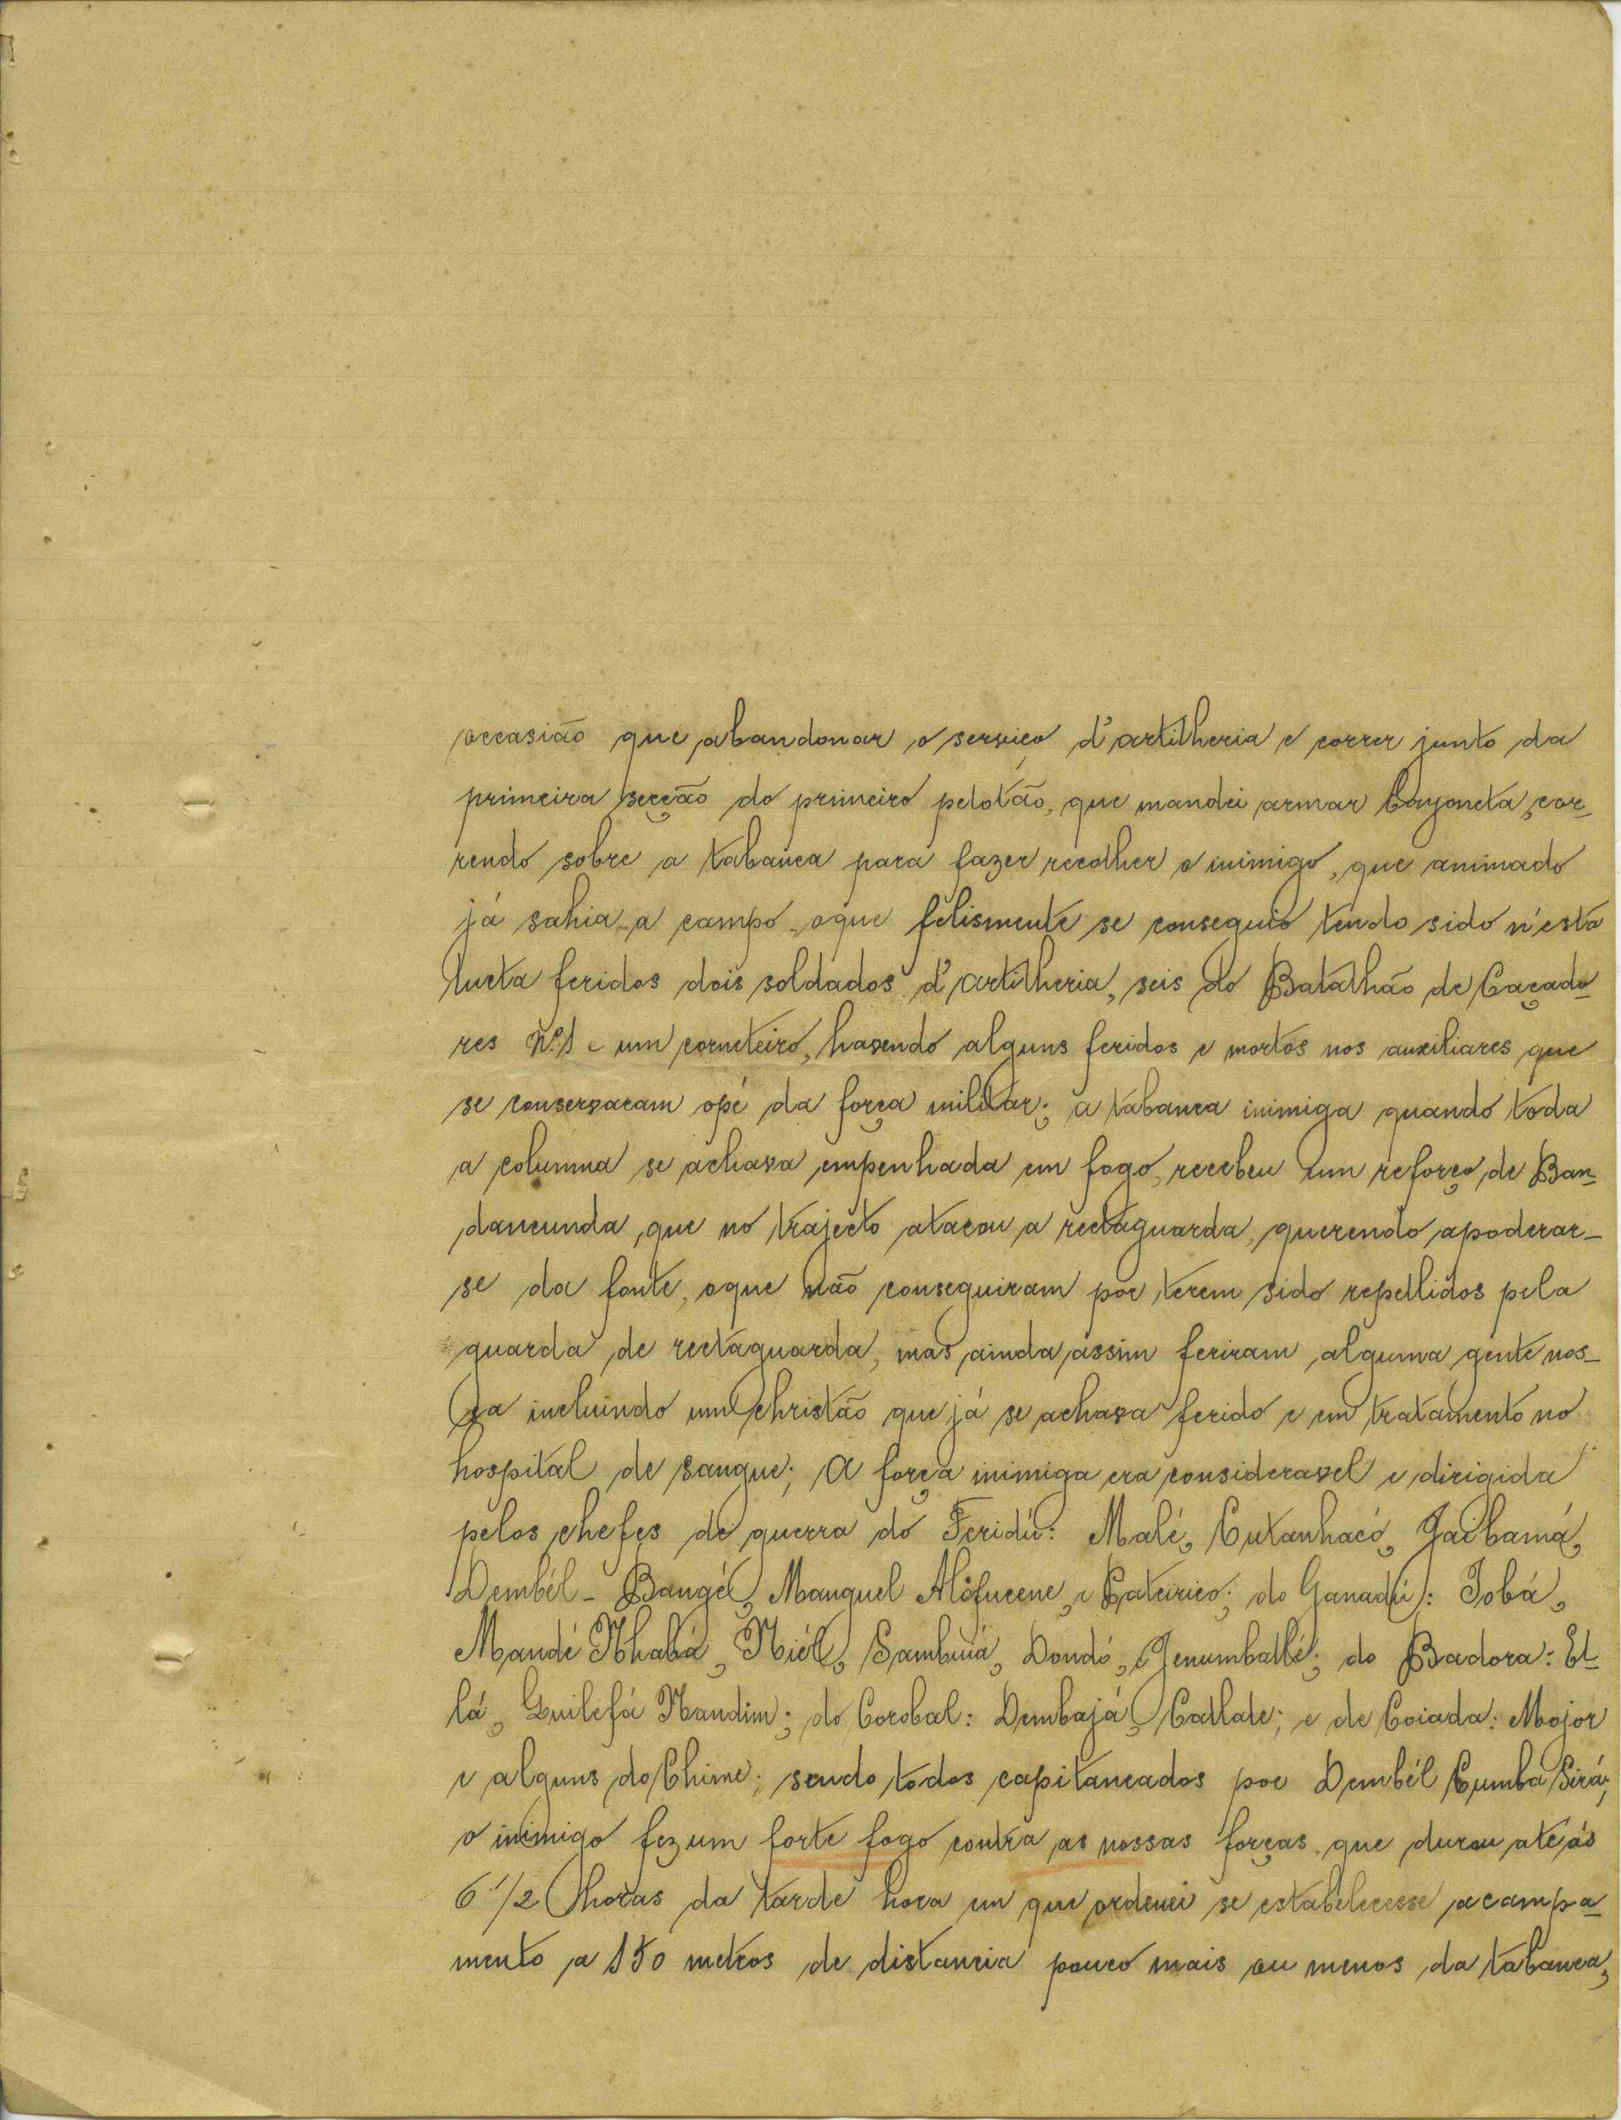 occasião que abandonar o serviço d'artilheria e correr junto da
primeira secção do primeiro pelotão, que mandei armar bayoneta, cor-
rendo sobre a tabanca para fazer recolher o inimigo, que animado
já sahia a campo, oque felismente se conseguio tendo sido n'esta
lucta feridos dois soldados d'artilheria, seis do Batalhão de Caçado-
res Nº1 e um corneteiro, havendo alguns feridos e mortos nos auxiliares que
se conservaram opé da força militar; a tabanca inimiga quando toda
a columna se achava empenhada em fogo, recebeu um reforço de Ban-
dancunda, que no trajecto atacou a rectaguarda, querendo apoderar-
se da fonte, oque não conseguiram por terem sido repellidos pela
guarda de rectaguarda, mas ainda assim feriram alguma gente nos-
sa incluindo um christão que já se achava ferido e em tratamento no
hospital de sangue; A força inimiga era consideravel e dirigida
pelos chefes de guerra do Feridú: Malé, Cutanhacó, Jaibamá,
Dembél-Bangél, Manguel Alofucene, e Pateirico; do Ganadú: Jobá,
Mandé Nhabá, Niél, Sambuiá, Dondó, e Jenumballé; do Badora: El-
lá, Guilefá Nandim; do Corobal: Dembajá, Callale; e de Coiada: Mojor
e alguns do Chime; sendo todos capitaneados por Dembél Cumba Sirá;
o inimigo fez um forte fogo contra as nossas forças, que durou até ás
6 1/2 horas da tarde hora em que ordenei se estabelecesse acampa-
mento a 150 metros de distancia pouco mais ou menos da tabanca,